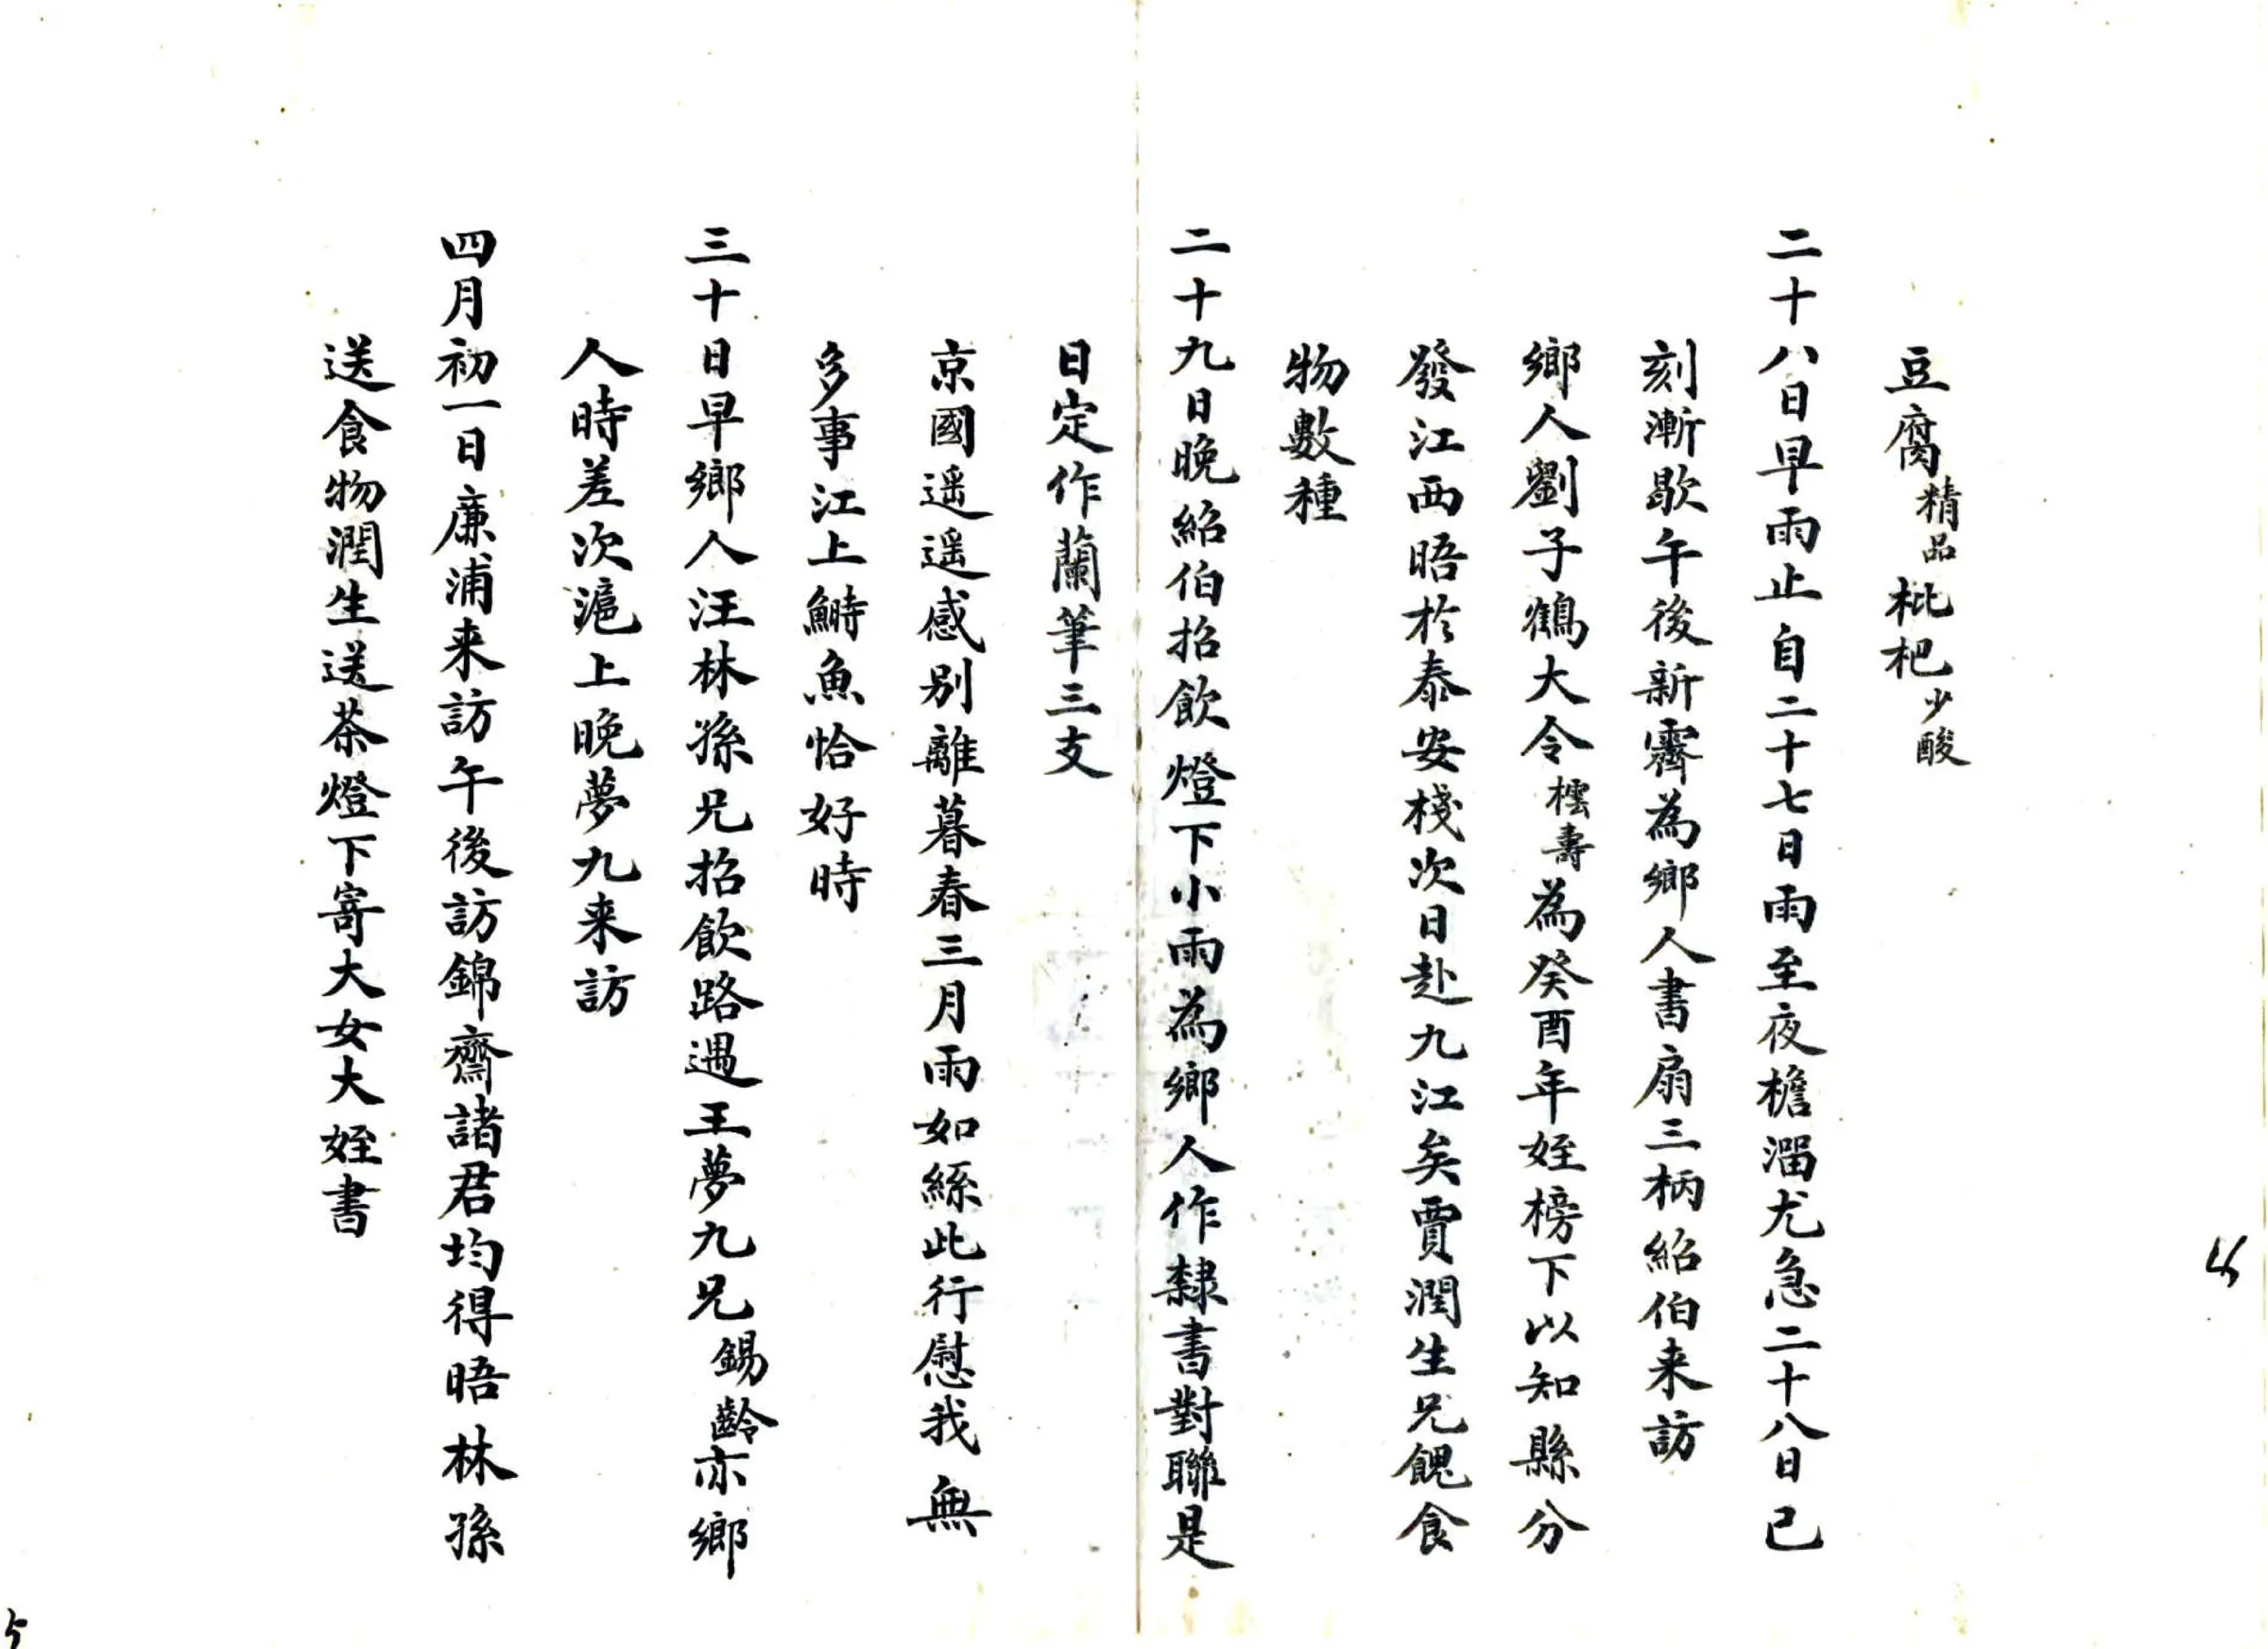 豆腐精品枇杷少酸
二十八日早雨止自二十七日雨至夜檐溜尤急二十八日已
刻漸歇午後新霽為鄉人書扇三柄紹伯来訪
鄉人劉子鶴大令樰壽為癸酉年姪榜下以知縣分
發江西晤於泰安棧次日赴九江矣賈潤生兄餽食
物數種
二十九日晚紹伯招飲燈下小雨為鄉人作隸書對聯是
日定作蘭筆三支
京國遥遥感别離暮春三月雨如絲此行慰我無
多事江上鰣魚恰好時
三十日早鄉人汪林孫兄招飲路遇王夢九兄錫齡亦鄉
人時差次滬上晚夢九来訪
四月初一日廉浦来訪午後訪錦齋諸君均得晤林孫
送食物潤生送茶燈下寄大女大姪書
4
5